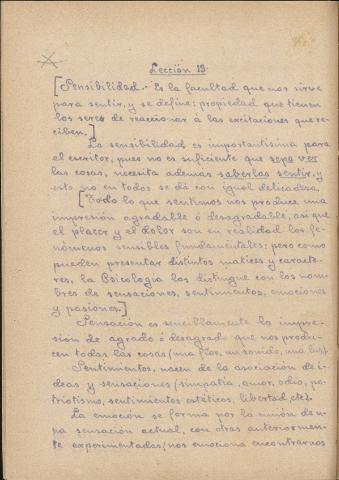 Lección 13
[Sensibilidad.- Es la facultad que nos sirve
para sentir, y se define: propiedad que tienen
los seres de reaccionar á las excitaciones que re-
ciben.]
La sensibilidad es importantísima para
el escritor, pues no es suficiente que sepa ver
las cosas, necesita ademas saberlas sentir, y
esto no en todos se dá con igual delicadeza.
[Todo lo que sentimos nos produce una
impresión agradable ó desagradable, asi que
el placer y el dolor son en realidad los fe-
nómenos sensibles fundamentales; pero como
pueden presentar distintos matices y caracte-
res, la Psicologia los distingue con los nom-
bres de sensaciones, sentimientos, emociones
y pasiones.]
Sensación es sencillamente la impre-
sión de agrado ó desagrado que nos produ-
cen todas las cosas (una flor, un sonido, una luz).
Sentimientos, nacen de la asociación de i-
deas y sensaciones (simpatia, amor, odio, pa-
triotismo, sentimientos estéticos, libertad, etc).
La emoción se forma por la unión de u-
na sensación actual, con otras anteriormen-
te experimentadas (nos emociona encontrarnos